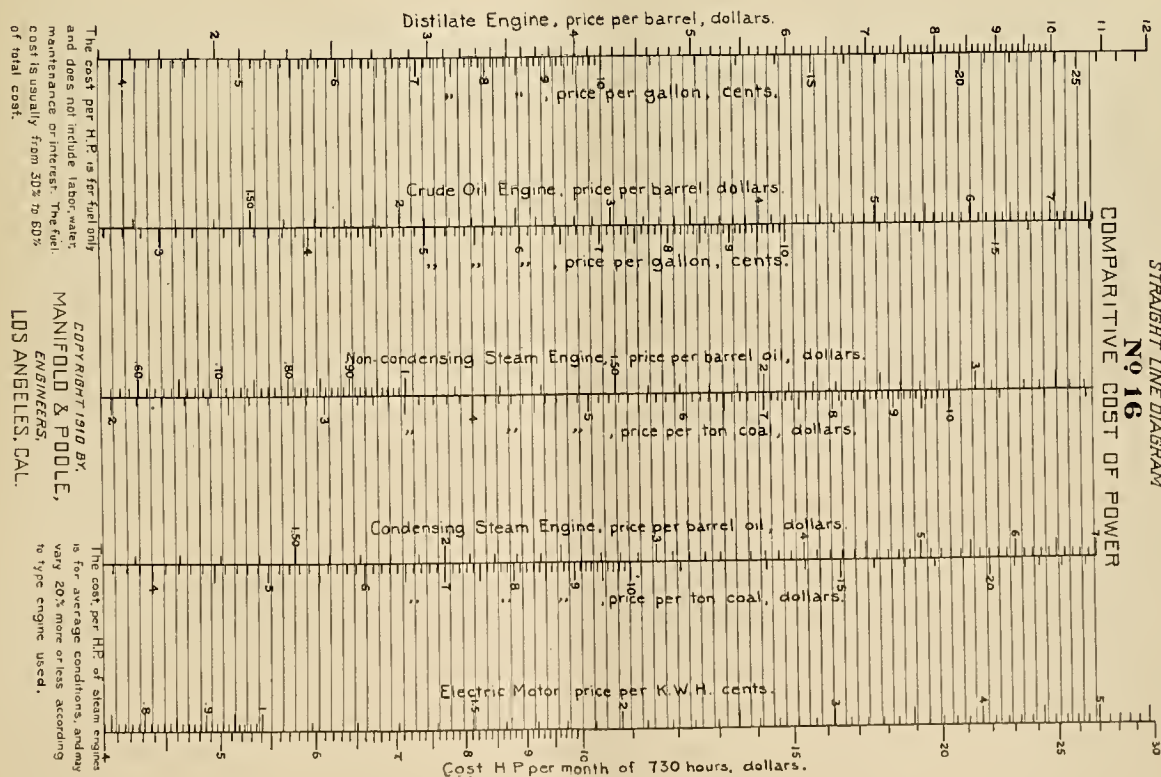 STRAIGHT LINE DIAGRAM
No 16
COMPARITIVE COST OF POWER
Distilate Engine, price per barrel, dollars.
2 3 4 5 6 7 8 9 10 11 12
4 5 6 7 8 9 10 15 20 25
" " , price per gallon, cents.
Crude Oil Engine, price per barrel, dollars.
1.50 2 3 4 5 6 7
3 4 5 6 7 8 9 10 15
" " " , price per gallon, cents.
Non-condensing Steam Engine, price per barrel oil, dollars.
.60 .70 .80 .90 1 1.50 2 3
2 3 4 5 6 7 8 9 10
" " " , price per ton coal, dollars.
Condensing Steam Engine, price per barrel oil, dollars.
1.50 2 3 4 5 6 7
4 5 6 7 8 9 10 15 20
" " " , price per ton coal, dollars.
Electric Motor price per K.W.H. cents.
.8 .9 1 1.5 2 3 4 5
4 5 6 7 8 9 10 15 20 25 30
Cost H P per month of 730 hours, dollars.
The cost per H.P. is for fuel only
and does not include labor, water,
maintenance or interest. The fuel
cost is usually from 30% to 60%
of total cost.
COPYRIGHT 1910 BY.
MANIFOLD & POOLE,
ENGINEERS,
LOS ANGELES, CAL.
The cost, per H.P. of steam engines
is for average conditions, and may
vary 20.% more or less according
to type engine used.